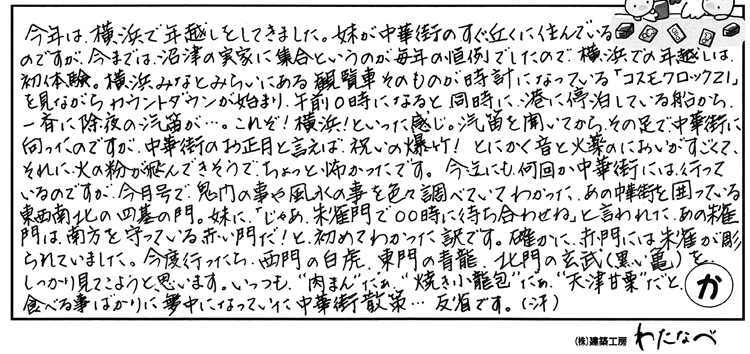 今年は、横浜で年越しをしてきました。妹が中華街のすぐ近くに住んでいる
のですが、今までは、沼津の実家に集合というのが毎年の恒例でしたので、横浜での年越しは、
初体験。横浜みなとみらいにある観覧車そのものが時計になっている「コスモクロック21」
を見ながらカウントダウンが始まり、午前0時になると同時に、港に停泊している船から、
一斉に除夜の汽笛が…。これぞ!横浜!といった感じ。汽笛を聞いてから、その足で、中華街に
向ったのですが、中華街のお正月と言えば、祝いの爆竹!とにかく音と火薬のにおいがすごくて、
それに、火の粉が飛んできそうで、ちょっと怖かったです。今までにも、何回か中華街には、行って
いるのですが、今月号で、鬼門の事や風水の事を色々調べていてわかった、あの中華街を囲っている
東西南北の四基の門。妹に、「じゃあ、朱雀門で○○時に待ち合わせね。」と言われた、あの朱雀
門は、南方を守っている赤い門だ!と、初めてわかった訳です。確かに、赤門には、朱雀が彫
られていました。今度行ったら、西門の白虎、東門の青龍、北門の玄武(黒い亀)を、
しっかり見てこようと思います。いつも、“肉まん”だぁ、“焼き小龍包”だぁ、“天津甘栗”だと、
食べる事ばかりに夢中になっていた中華街散策… 反省です。(汗)
か
(株)建築工房 わたなべ